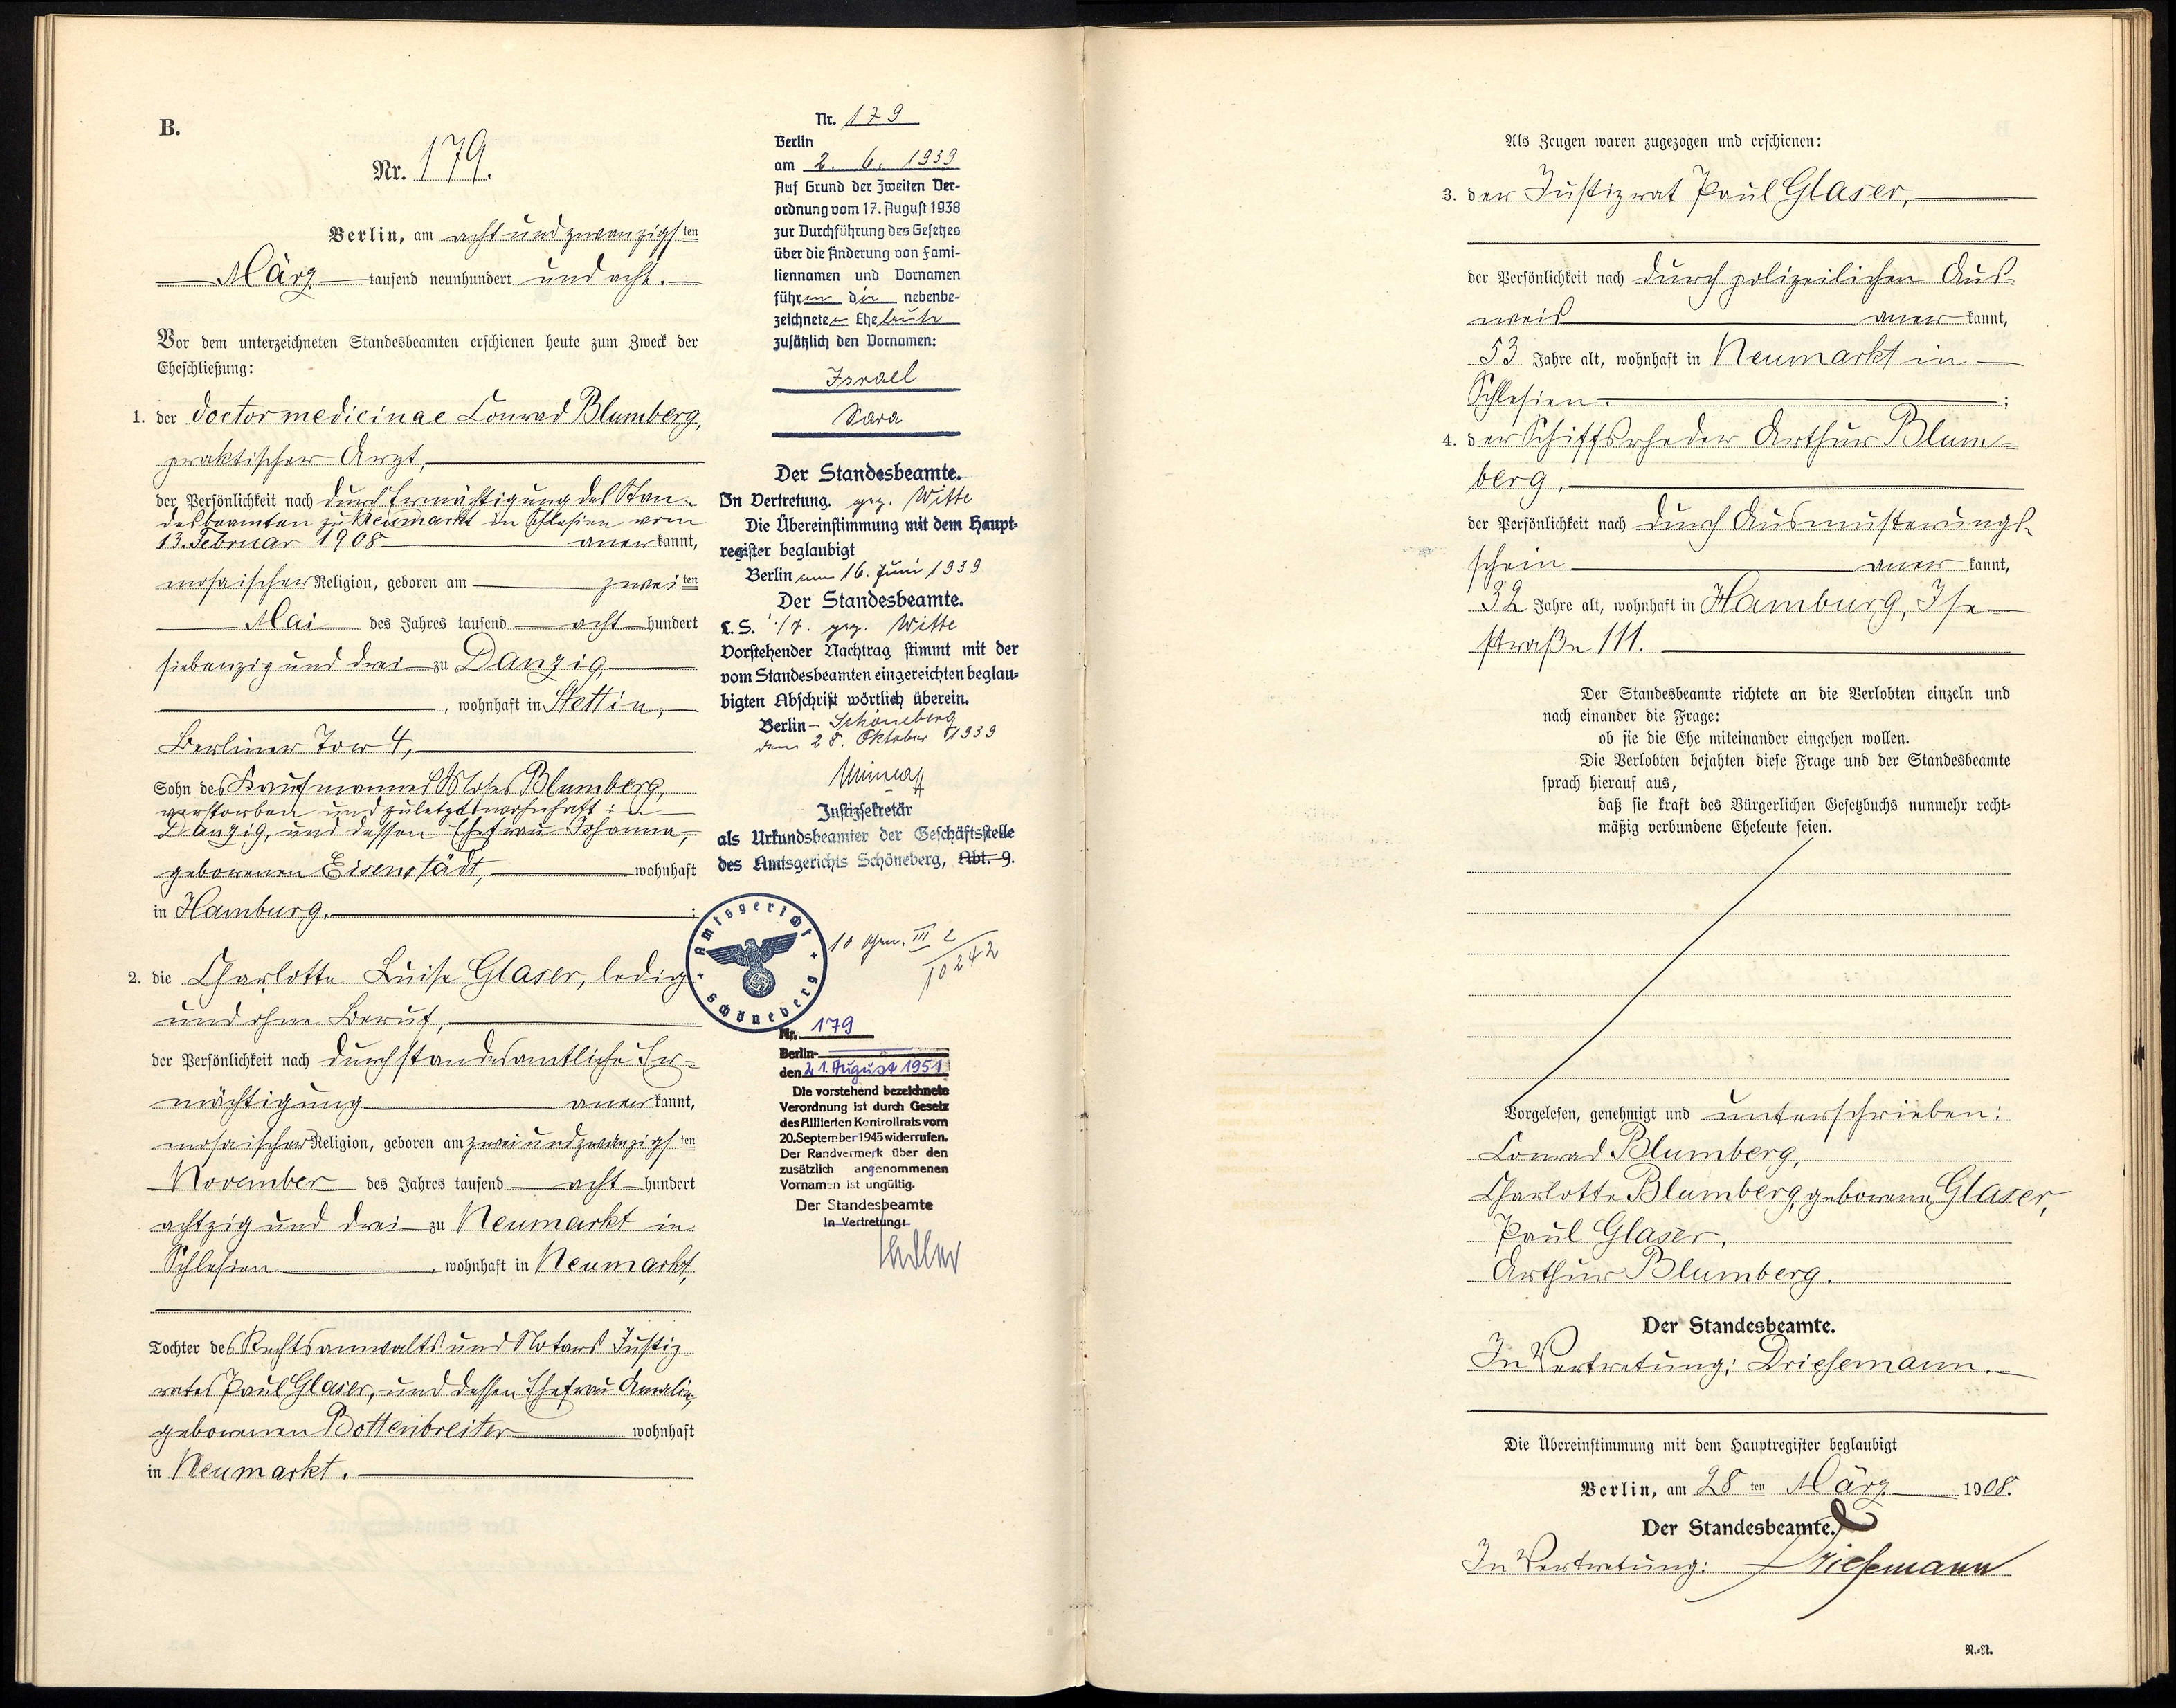 B.
Nr. 179.
Berlin, am achtundzwanzigsten
März tausend neunhundert und acht.
Vor dem unterzeichneten Standesbeamten erschienen heute zum Zweck der
Eheschließung:
1. der doctor medicinae Conrad Blumberg,
praktischer Arzt,
der Persönlichkeit nach durch Ermächtigung des Stan-
desbeamten zu Neumarkt in Schlesien vom
13. Februar 1908 anerkannt,
mosaischer Religion, geboren am zweiten
Mai des Jahres tausend acht hundert
siebenzig und drei zu Danzig,
, wohnhaft in Stettin,
Berliner Tor 4,
Sohn des Kaufmannes Moses Blumberg,
verstorben und zuletzt wohnhaft in
Danzig, und dessen Ehefrau Johanna,
geborenen Eisenstädt, wohnhaft
in Hamburg. ;
2. die Charlotte Luise Glaser, ledig
und ohne Beruf,
der Persönlichkeit nach durch standesamtliche Er-
mächtigung anerkannt,
mosaischer Religion, geboren am zweiundzwanzigsten
November des Jahres tausend acht hundert
achtzig und drei zu Neumarkt in
Schlesien, wohnhaft in Neumarkt,
Tochter des Rechtsanwalts und Notars Justiz-
rates Paul Glaser, und dessen Ehefrau Amalie,
geborenen Bottenbreiter wohnhaft
in Neumarkt.
Nr. 179
Berlin
am 2. 6. 1939
Auf Grund der Zweiten Ver-
ordnung vom 17. August 1938
zur Durchführung des Gesetzes
über die Änderung von Fami-
liennamen und Vornamen
führen die nebenbe-
zeichneten Eheleute
zusätzlich den Vornamen:
Israel
Sara
Der Standesbeamte.
In Vertretung. gez. Witte
Die Übereinstimmung mit dem Haupt-
register beglaubigt
Berlin am 16. Juni 1939
Der Standesbeamte.
L. S. gez. Witte
Vorstehender Nachtrag stimmt mit der
vom Standesbeamten eingereichten beglau-
bigten Abschrift wörtlich überein.
Berlin-Schöneberg
den 28. Oktober 1939
Justizsekretär
als Urkundsbeamter der Geschäftsstelle
des Amtsgerichts Schöneberg, Abt. 9.
Amtsgericht
Schöneberg
10 Gen. III 2
10242
Nr. 179
Berlin-
den 21. August 1951
Die vorstehend bezeichnete
Verordnung ist durch Gesetz
des Alliierten Kontrollrats vom
20.September 1945 widerrufen.
Der Randvermerk über den
zusätzlich angenommenen
Vornamen ist ungültig.
Der Standesbeamte
In Vertretung:
Als Zeugen waren zugezogen und erschienen:
3. der Justizrat Paul Glaser,
der Persönlichkeit nach durch polizeilichen Aus-
weis anerkannt,
53 Jahre alt, wohnhaft in Neumarkt in
Schlesien. ;
4. der Schiffsrheder Arthur Blum-
berg,
der Persönlichkeit nach durch Ausmusterungs-
schein anerkannt,
32 Jahre alt, wohnhaft in Hamburg, Ise-
straße 111.
Der Standesbeamte richtete an die Verlobten einzeln und
nach einander die Frage:
ob sie die Ehe miteinander eingehen wollen.
Die Verlobten bejahten diese Frage und der Standesbeamte
sprach hierauf aus,
daß sie kraft des Bürgerlichen Gesetzbuchs nunmehr recht-
mäßig verbundene Eheleute seien.
Vorgelesen, genehmigt und unterschrieben:
Conrad Blumberg,
Charlotte Blumberg, geborene Glaser,
Paul Glaser,
Arthur Blumberg.
Der Standesbeamte.
In Vertretung: Driesemann.
Die Übereinstimmung mit dem Hauptregister beglaubigt
Berlin, am 28ten März 1908.
Der Standesbeamte.
In Vertretung: Driesemann
R.-A.